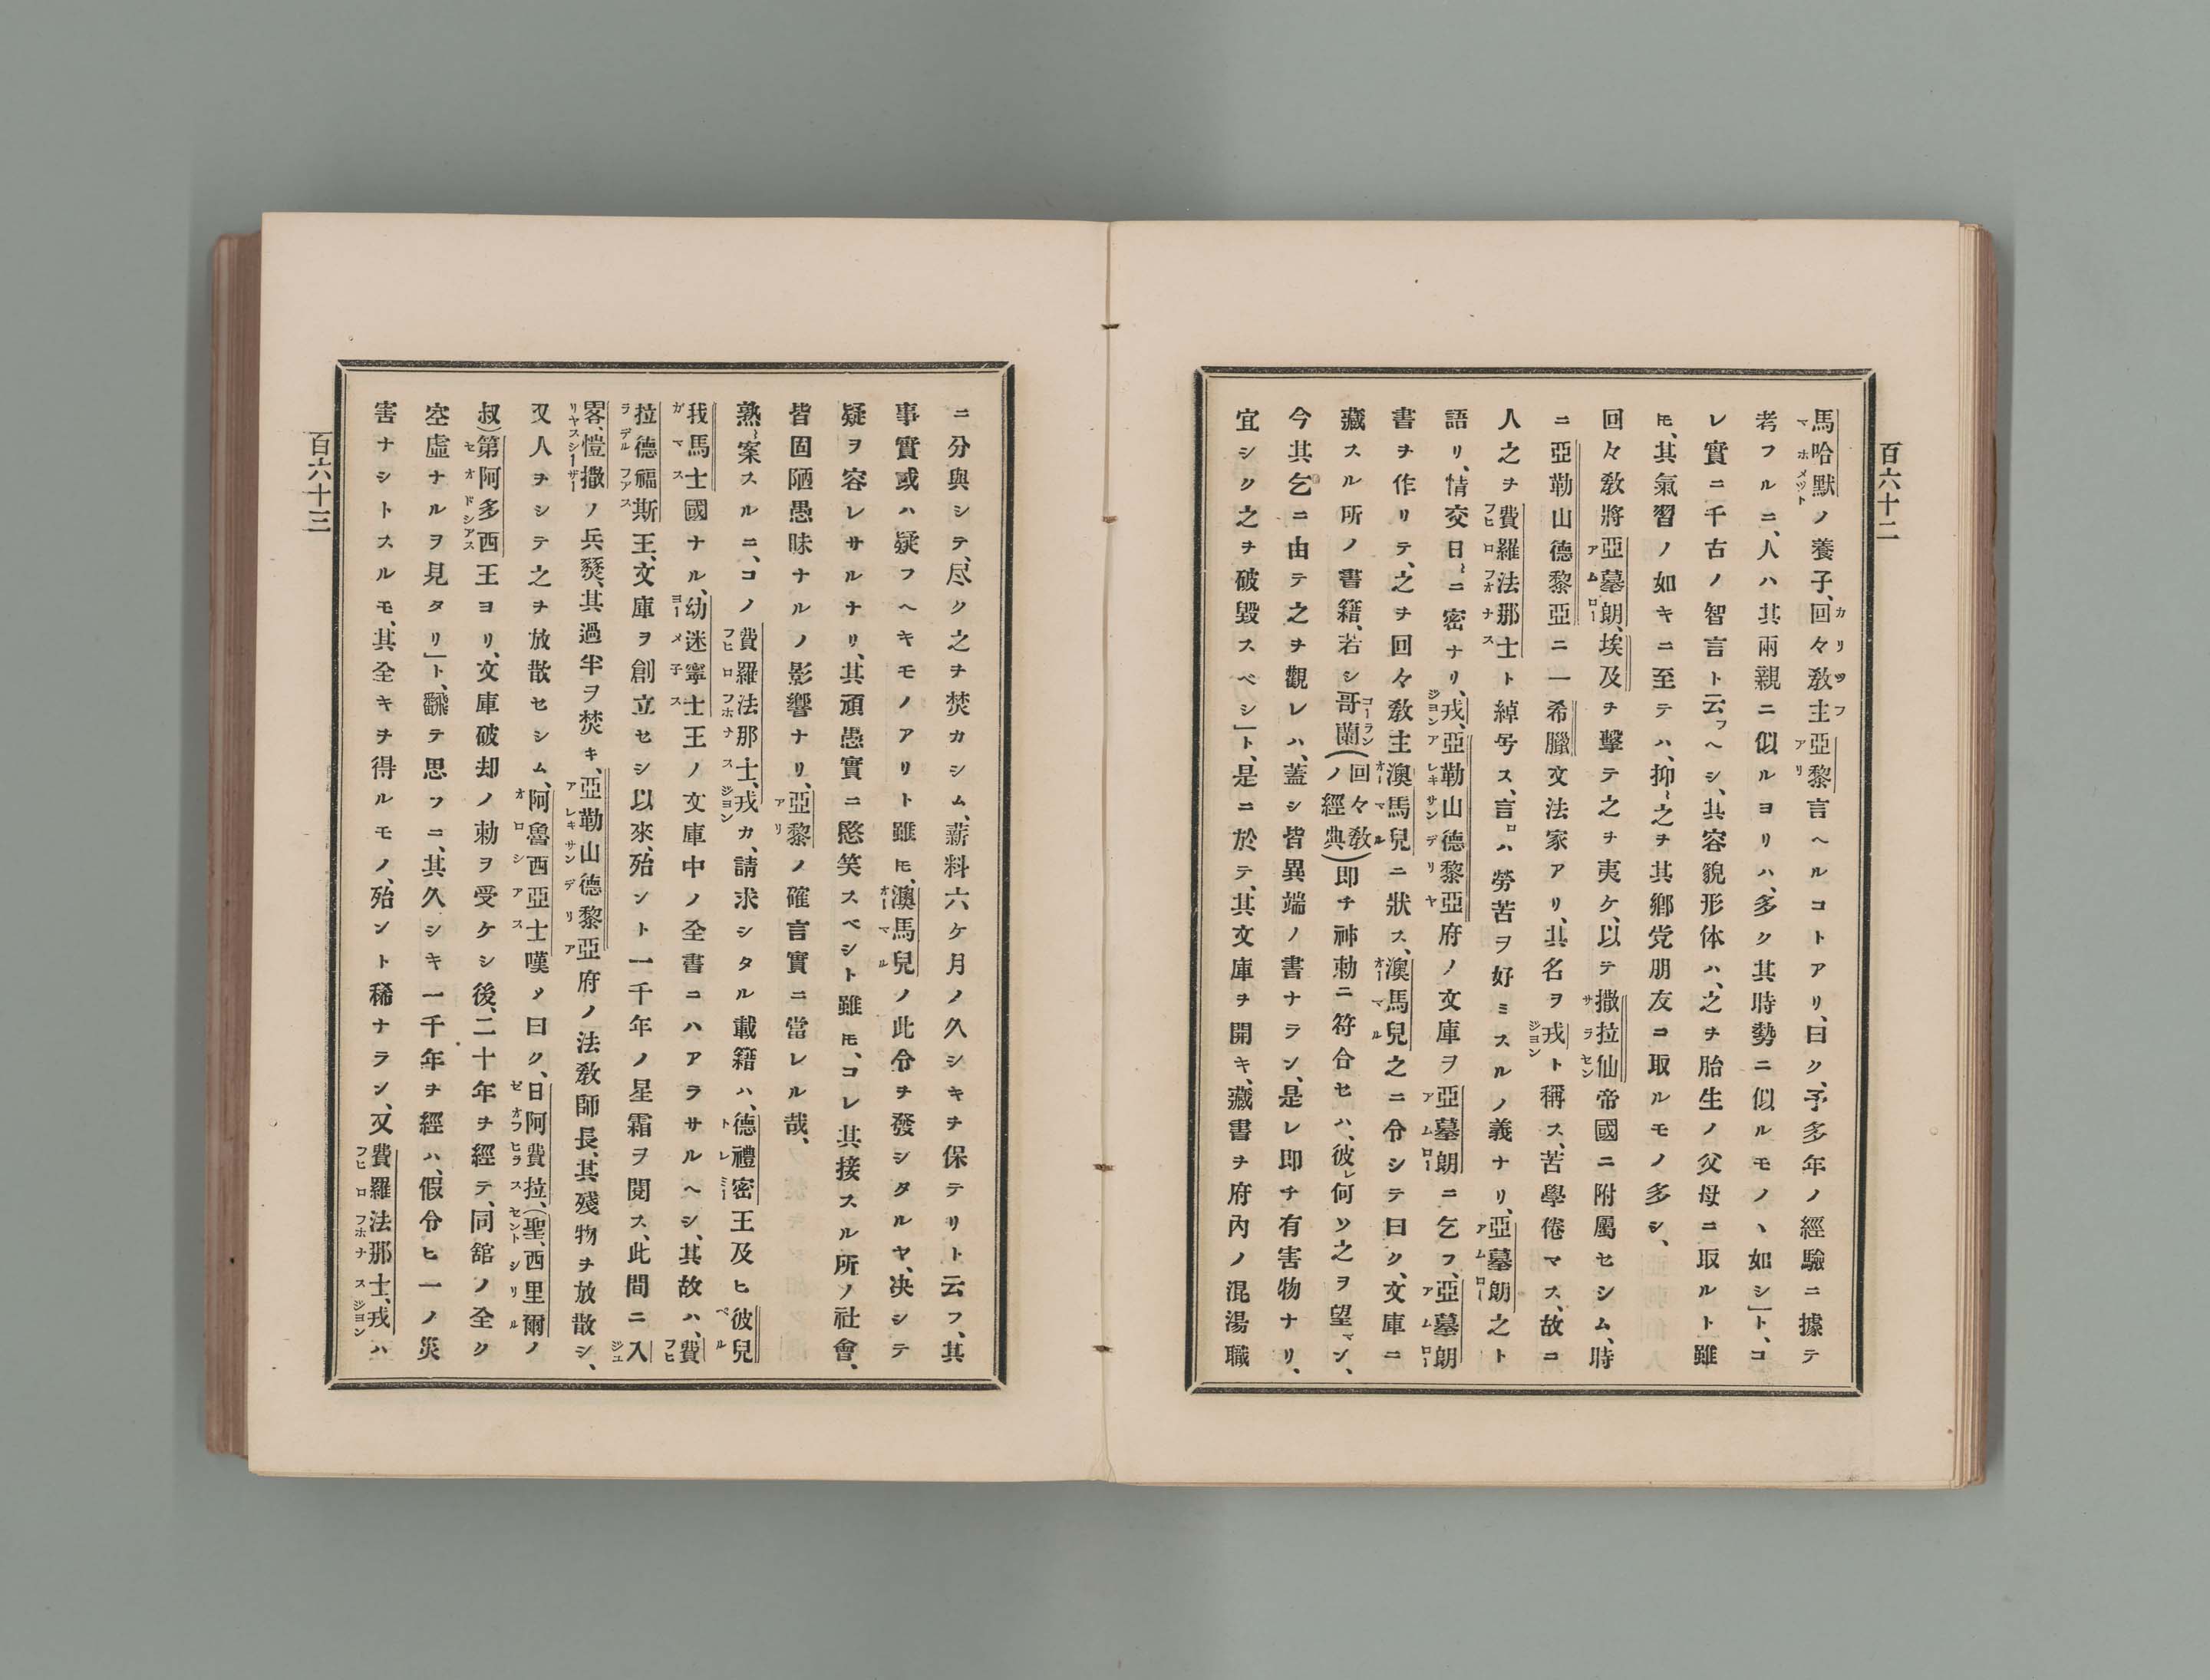 百六十二
馬哈默ノ養子、回々敎主亞黎言ヘルコトアリ、曰ク、予多年ノ經驗ニ據テ
考フルニ、人ハ其兩親ニ似ルヨリハ、多ク其時勢ニ似ルモノヽ如シ」ト、コ
レ實ニ千古ノ智言ト云フヘシ、其容貌形体ハ、之ヲ胎生ノ父母ニ取ルト雖
𪜈、其氣習ノ如キニ至テハ、抑〻之ヲ其鄕党朋友コ取ルモノ多シ、
回々敎將亞墓朗、埃及ヲ擊テ之ヲ夷ケ、以テ撒拉仙帝國ニ附屬セシム、時
ニ亞勒山德黎亞ニ一希臘文法家アリ、其名ヲ戎ト稱ス、苦學倦マス、故コ
人之ヲ費羅法那士ト綽号ス、言ロハ勞苦ヲ好ミスルノ義ナリ、亞墓朗之ト
語リ、情交日〻ニ密ナリ、戎、亞勒山德黎亞府ノ文庫ヲ亞墓朗ニ乞フ、亞墓朗
書ヲ作リテ、之ヲ回々敎主澳馬兒ニ狀ス、澳馬兒之ニ令シテ曰ク、文庫ニ
藏スル所ノ書籍、若シ哥蘭(回々敎ノ經典)即チ神勅ニ符合セハ、彼レ何ソ之ヲ望マン、
今其乞ニ由テ之ヲ觀レハ、蓋シ皆異端ノ書ナラン、是レ即チ有害物ナリ、
宜シク之ヲ破毀スベシ」ト、是ニ於テ、其文庫ヲ開キ、藏書ヲ府內ノ混湯職
ニ分與シテ、尽ク之ヲ焚カシム、薪料六ケ月ノ久シキヲ保テリト云フ、其
事實或ハ疑フヘキモノアリト雖𪜈、澳馬兒ノ此令ヲ發シタルヤ、决シテ
疑ヲ容レサルナリ、其頑愚實ニ愍笑スベシト雖𪜈、コレ其接スル所ノ社會、
皆固陋愚昧ナルノ影響ナリ、亞黎ノ確言實ニ當レル哉、
熟〻案スルニ、コノ費羅法那士、戎カ、請求シタル載籍ハ、德禮密王及ヒ彼兒
我馬士國ナル、幼迷寧士王ノ文庫中ノ全書コハアラサルヘシ、其故ハ、費
拉德福斯王、文庫ヲ創立セシ以來、殆ント一千年ノ星霜ヲ閱ス、此間ニ入
畧、愷撒ノ兵燹、其過半ヲ焚キ、亞勒山德黎亞府ノ法敎師長、其殘物ヲ放散シ、
又人ヲシテ之ヲ放散セシム、阿魯西亞士嘆メ曰ク、日阿費拉、(聖、西里爾ノ
叔)第阿多西王ヨリ、文庫破却ノ勅ヲ受ケシ後、二十年ヲ經テ、同舘ノ全ク
空虛ナルヲ見タリ」ト、飜テ思フニ、其久シキ一千年ヲ經ハ、假令ヒ一ノ災
害ナシトスルモ、其全キヲ得ルモノ、殆ント稀ナラン、又費羅法那士、戎ハ
百六十三